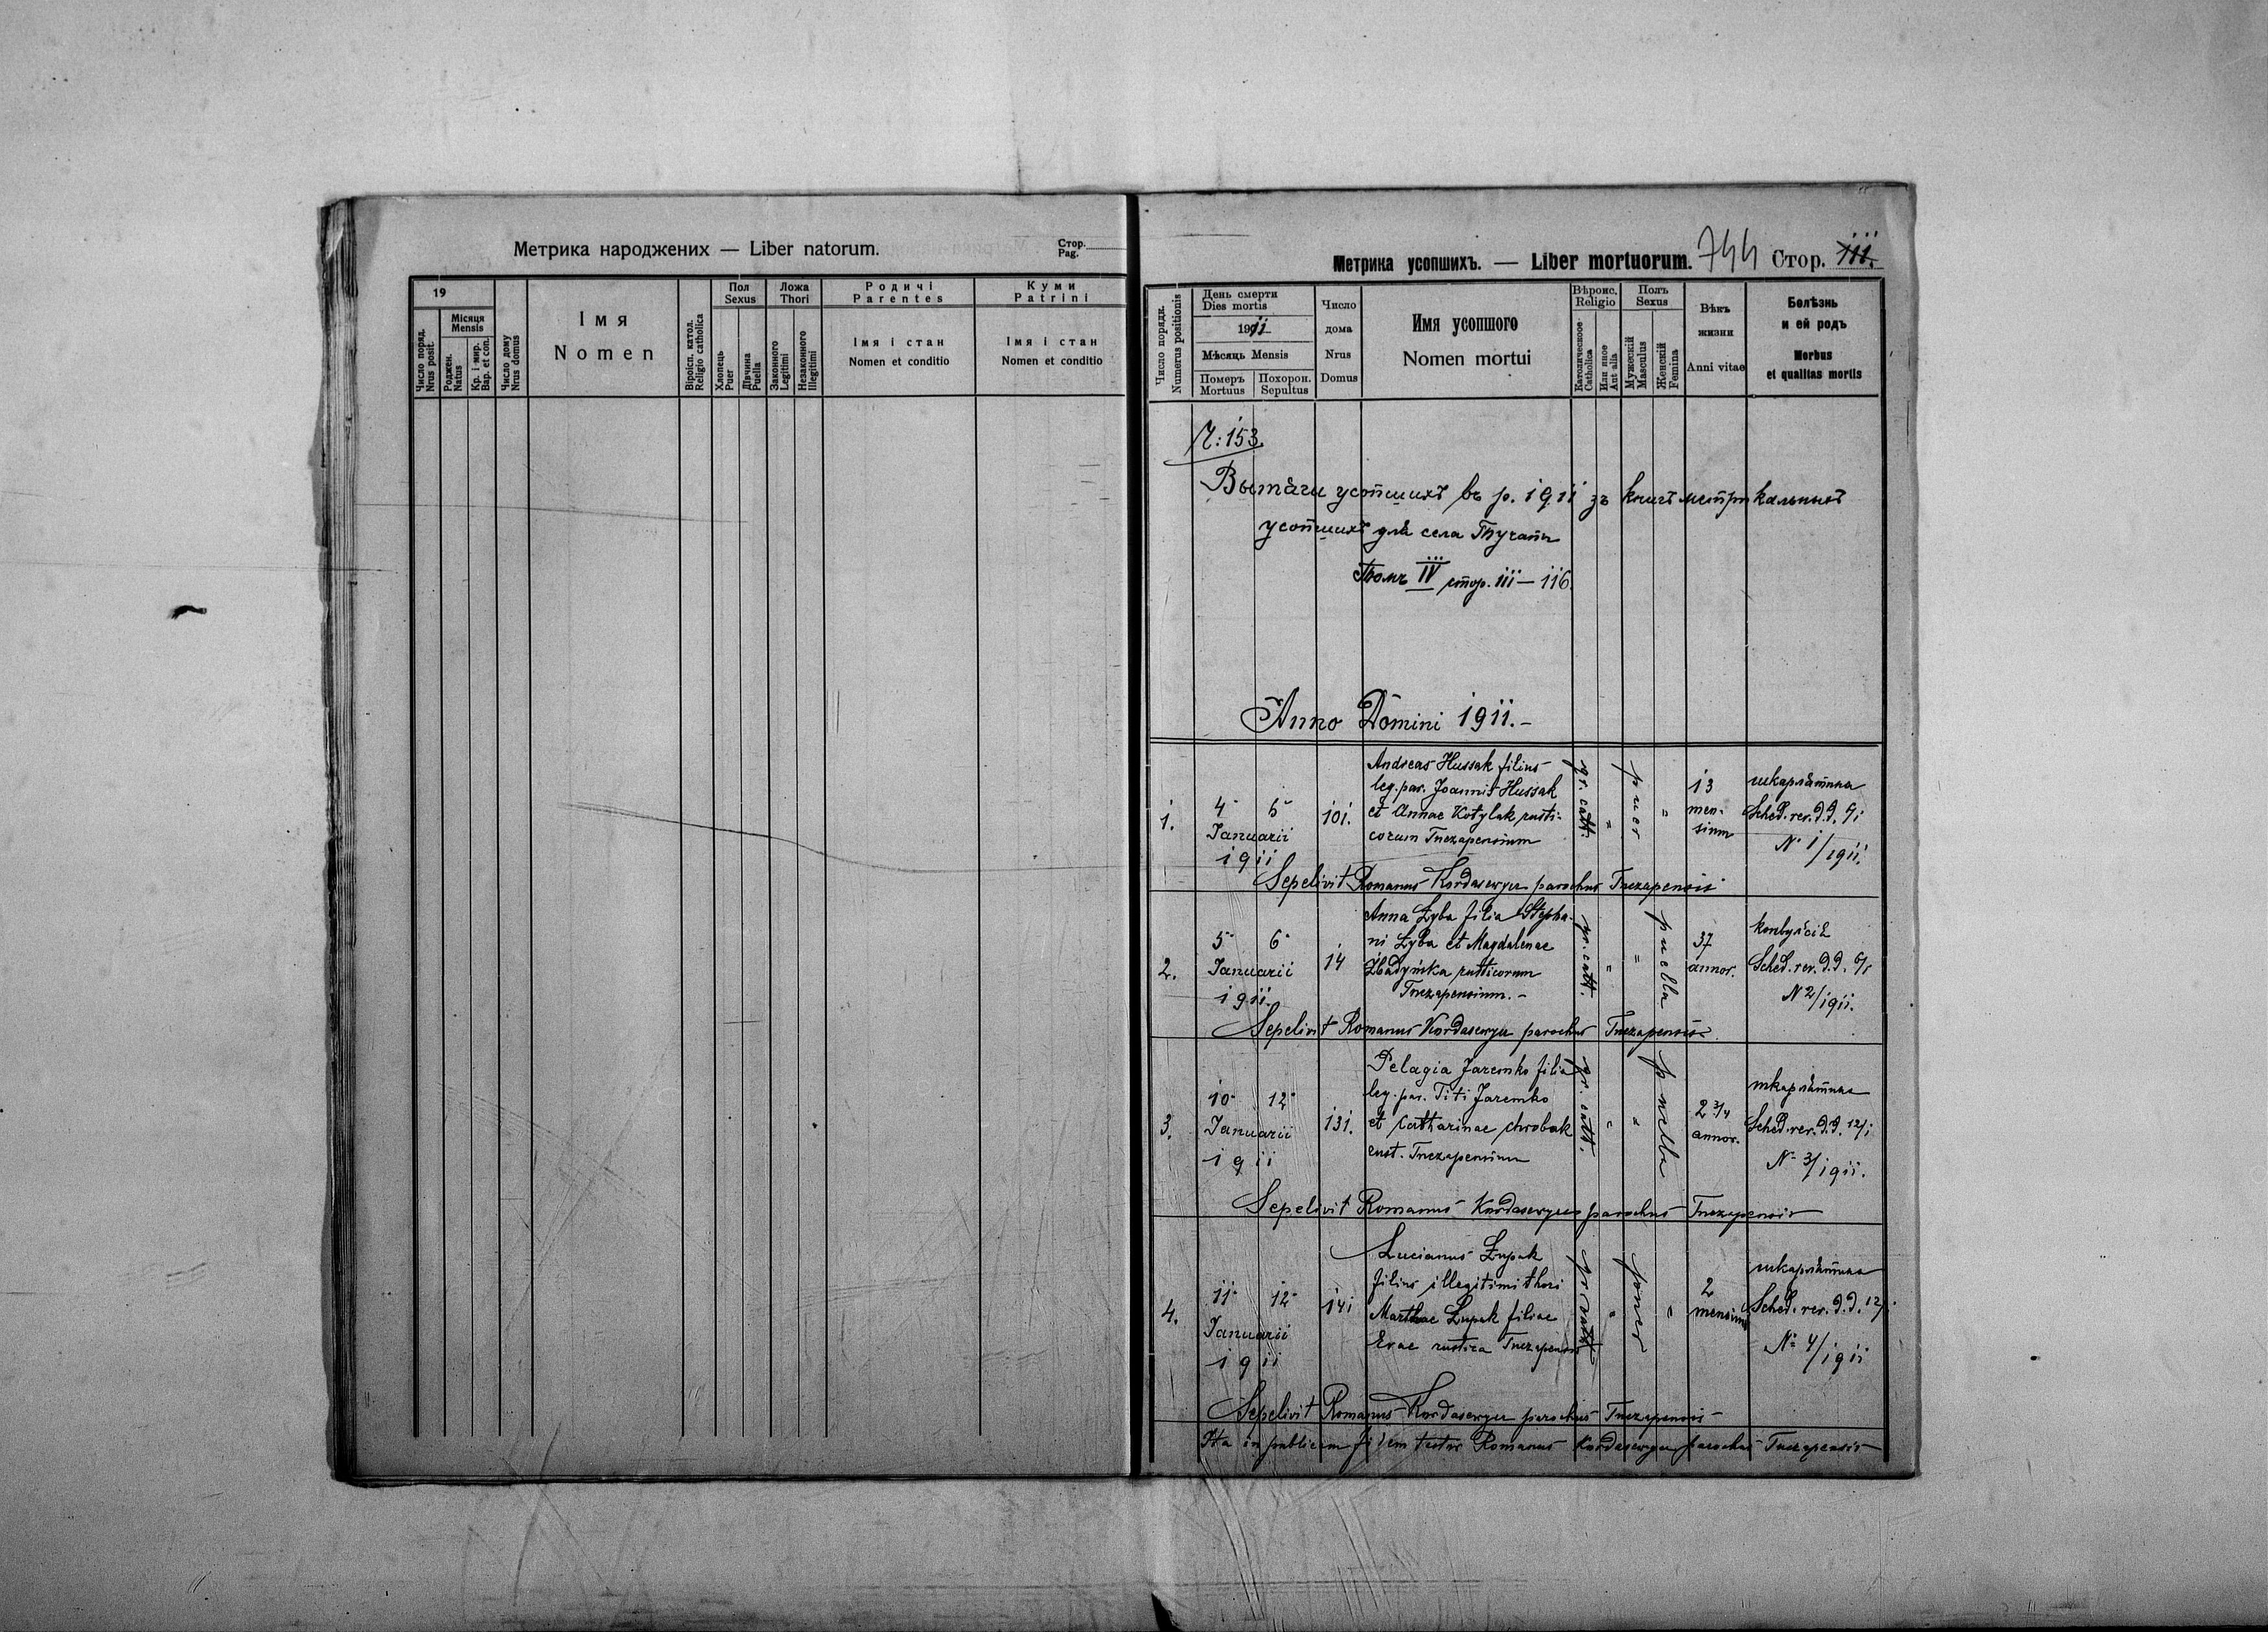 Метрика народжених — Liber natorum.
Стор.
Pag.
19
Число поряд.
Nrus posit.
Місяця
Mensis
Роджен.
Natus
Кр. і мир.
Bap. et con.
Число дому
Nrus domus
Імя
Nomen
Віроісп. катол.
Religio catholica
Пол
Sexus
Хлопець
Puer
Дївчина
Puella
Ложа
Thori
Законного
Legitimi
Незаконного
Illegitimi
Родичі
Parentes
Імя і стан
Nomen et conditio
Куми
Patrini
Імя і стан
Nomen et conditio
Метрика усопшихъ. — Liber mortuorum. 744 Стор. 111.
Число порядк.
Numerus positionis
День смерти
Dies mortis
1911
Мѣсяць Mensis
Померъ
Mortuus
Похорон.
Sepultus
Число
дома
Nrus
Domus
Имя усопшого
Nomen mortui
Вѣроис.
Religio
Католическое
Catholica
Или иное
Aut alia
Полъ
Sexus
Мужескій
Masculus
Женскій
Femina
Вѣкъ
жизни
Anni vitae
Болѣзнь
и ей родъ
Morbus
et qualitas mortis
Ч: 153
усопшихъ въ р. 1911 зъ книгъ метрикальныхъ
усопшихъ для села
Томъ IV стор. 111–116.
Anno Domini 1911.–
1.
4 5
Januarii
1911
101.
Andreas Hussak filius
leg. par. Joannis Hussak
et Annae Kotylak rusti-
corum Tuczapensium
gr. cath.
"
puer
"
13
men-
sium
шкарлятина
Sched. rev. d.d. 4/1
N 1/1911.
Sepelivit Romanus parochus Tuczapensis
2.
5 6
Januarii
1911.
14
Anna Zyba filia Stepha-
ni Zyba et Magdalenae
rusticorum
Tuczapensium.–
gr. cath.
"
"
puella
37
annor.
Sched. rev. d.d. 6/1
N 2/1911.
Sepelivit Romanus parochus Tuczapensis
3.
10 12
Januarii
1911
131.
Pelagia Jaremko filia
leg. par. Titi Jaremko
et Catharinae Chrobak
Tuczapensium
gr. cath.
"
"
puella
2 3/4
annor.
шкарлятина
Sched. rev. d.d. 12/1
N 3/1911.
Sepelivit Romanus parochus Tuczapensis
4.
11 12
Januarii
1911
141
Lucianus Łupak
filius illegitimi thori
Marthae Łupak filiae
Evae rustica Tuczapensis
gr. cath.
"
puer
"
2
mensium
шкарлятина
Sched. rev. d.d. 12/1
N 4/1911
Sepelivit Romanus parochus Tuczapensis
Ita in publicam fidem testor Romanus parochus Tuczapensis